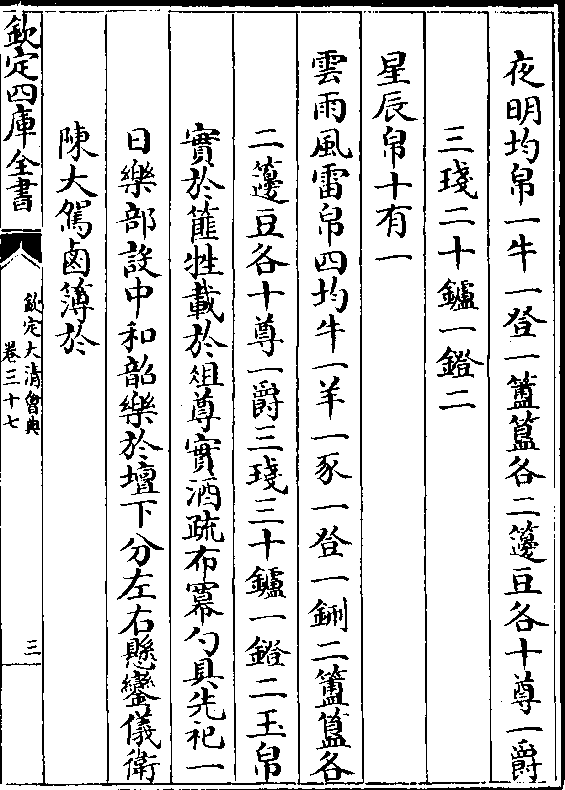 夜明均帛一牛一登一簠簋各二籩豆各十尊一爵
三琖二十鑪一鐙二
星辰帛十有一
雲雨風雷帛四均牛一羊一豕一登一鉶二簠簋各
二籩豆各十尊一爵三琖三十鑪一鐙二玉帛
實於篚牲載於俎尊實酒疏布冪勺具先祀一
日樂部設中和韶樂於壇下分左右懸鑾儀衛
陳大駕鹵簿於
欽定四庫全書
欽定大清會典
卷三十七
三